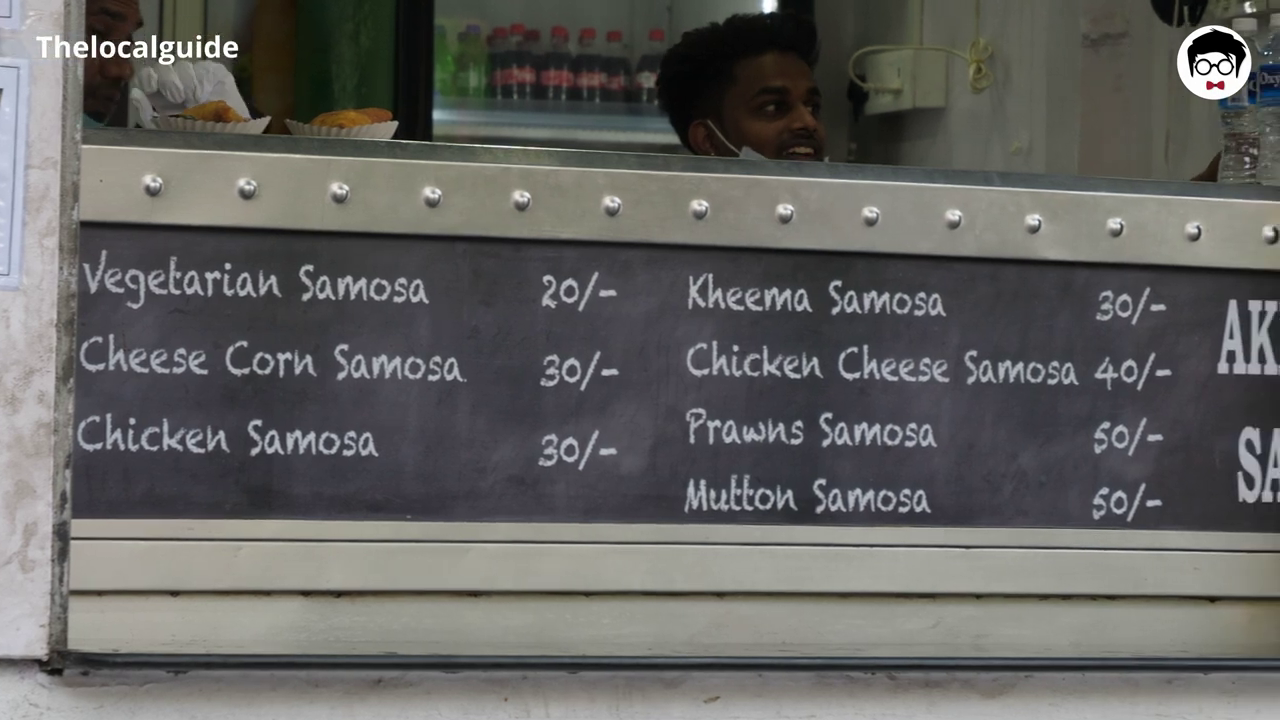 Thelocalguide
Vegetarian Samosa 20/-
Cheese Corn Samosa. 30/-
Chicken Samosa 30/-
Kheema Samosa 30/-
Chicken Cheese Samosa 40/-
Prawns Samosa 50/-
Mutton Samosa 50/-
AK
SA